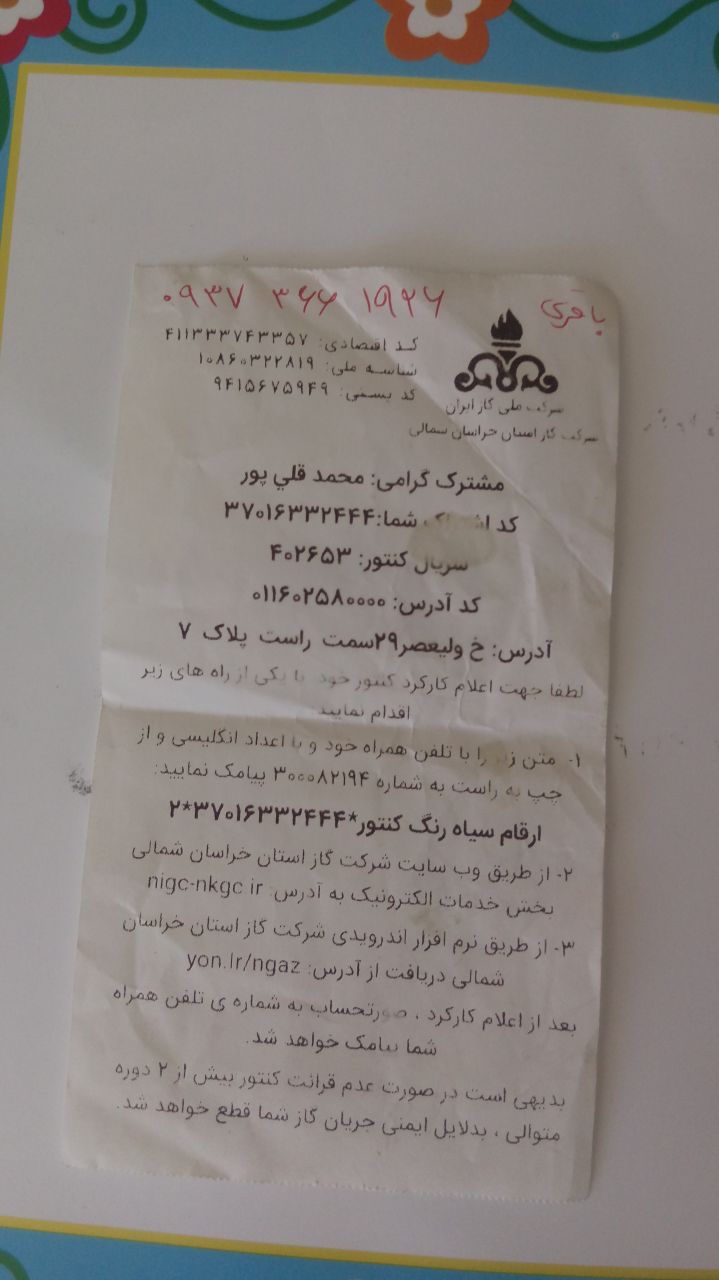 باقری
۰۹۳۷ ۳۶۶ ۱۹۲۶
کد اقتصادی: ۴۱۱۳۳۳۷۴۳۳۵۷
شناسه ملی: ۱۰۸۶۰۳۲۲۸۱۹
کد پستی: ۹۴۱۵۶۷۵۹۴۹
شرکت ملی گاز ایران
شرکت گاز استان خراسان شمالی
مشترک گرامی: محمد قلي پور
کد اشتراک شما:۳۷۰۱۶۳۳۲۴۴۴
سریال کنتور: ۴۰۲۶۵۳
کد آدرس: ۰۱۱۶۰۲۵۸۰۰۰۰
آدرس: خ ولیعصر۲۹سمت راست پلاک ۷
لطفا جهت اعلام کارکرد کنتور خود با یکی از راه های زیر
اقدام نمایید
۱- متن زیر را با تلفن همراه خود و با اعداد انگلیسی و از
چپ به راست به شماره ۳۰۰۰۸۲۱۹۴ پیامک نمایید:
ارقام سیاه رنگ کنتور*۳۷۰۱۶۳۳۲۴۴۴*۲
۲- از طریق وب سایت شرکت گاز استان خراسان شمالی
بخش خدمات الکترونیک به آدرس: nigc-nkgc.ir
۳- از طریق نرم افزار اندرویدی شرکت گاز استان خراسان
شمالی دریافت از آدرس: yon.ir/ngaz
بعد از اعلام کارکرد ، صورتحساب به شماره ی تلفن همراه
شما پیامک خواهد شد.
بدیهی است در صورت عدم قرائت کنتور بیش از ۲ دوره
متوالی ، بدلایل ایمنی جریان گاز شما قطع خواهد شد.